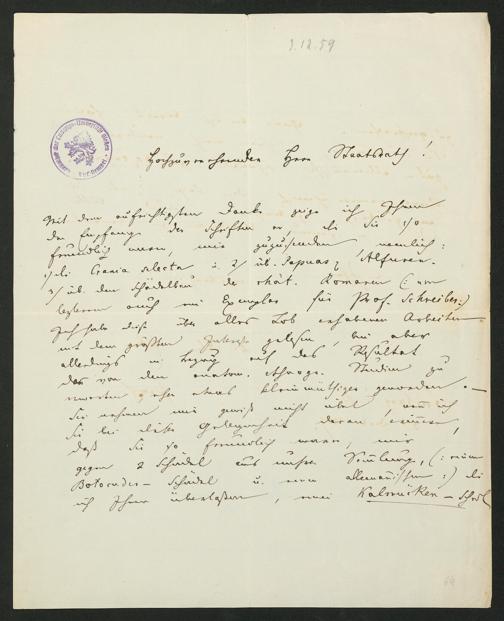 3.12.59
Hochzuverehrender Herr Staatsrath!
Mit dem aufrichtigsten Danke zeige ich Ihnen
den Empfang der Schriften an, die Sie so
freundlich waren, mir zuzusenden, nemlich:
1/ die Crania selecta u. 2/ üb. Papuas & Alfuren.
3/ üb. den Schädelbau der rhät. Romanen (: von
letzteren auch ein Exemplar für Prof. Schreiber :)
Ich habe diese über alles Lob erhabenen Arbeiten
mit dem größten Interesse gelesen, bin aber
allerdings in bezug auf das Resultat
das von den anatom. Studien zu
erwarten etwas kleinmüthiger geworden. —
Sie nehmen mir gewiß nicht übel, wenn ich
Sie bei dieser Gelegenheit daran erinnere,
daß Sie so freundlich waren, mir
gegen 2 Schädel aus unserer Sammlung, (: einen
Botocuden – Schädel u. einen allemannischen :) die
ich Ihnen überlassen, einen Kalmücken – Schädel